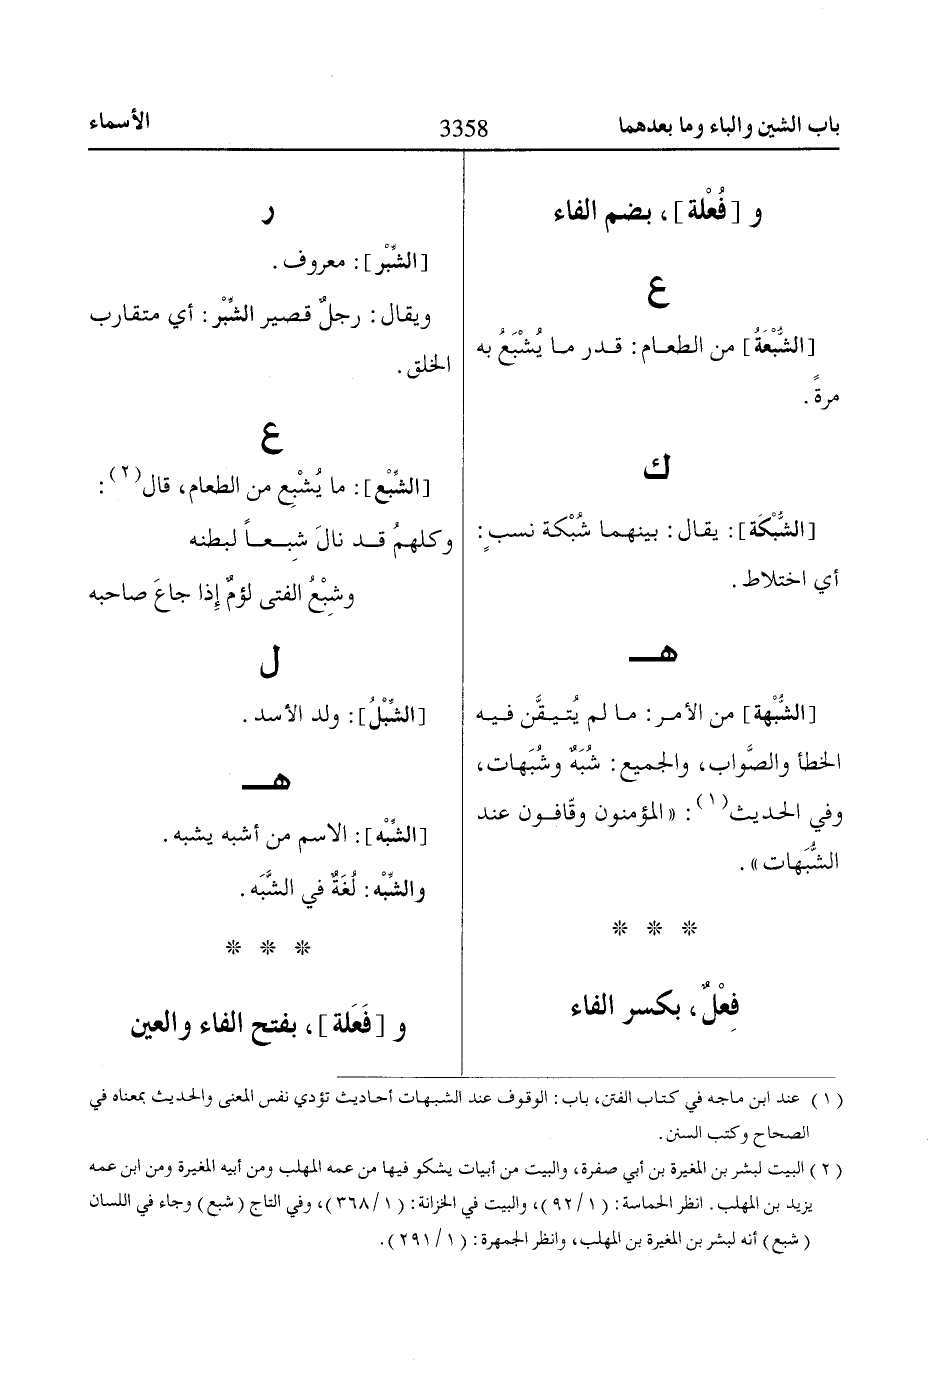 باب الشين والباء وما بعدهما 3358 الأسماء
و [فُعْلة]، بضم الفاء
ع
[الشُّبْعَةُ] من الطعام: قدر ما يُشْبَعُ به
مرةً.
ك
[الشُّبْكَة]: يقال: بينهما شُبْكة نسبٍ:
أي اختلاط.
هـ
[الشُّبْهة] من الأمر: ما لم يُتيقَّن فيه
الخطأ والصَّواب، والجميع: شُبَهٌ وشُبَهات،
وفي الحديث(١): «المؤمنون وقّافون عند
الشُّبَهات».
* * *
فِعْلٌ، بكسر الفاء
ر
[الشِّبْر]: معروف.
ويقال: رجلٌ قصير الشِّبْر: أي متقارب
الخلق.
ع
[الشِّبْع]: ما يُشْبِع من الطعام، قال(٢):
وكلهمُ قد نالَ شِبعاً لبطنه
وشِبْعُ الفتى لؤمٌ إذا جاعَ صاحبه
ل
[الشِّبْلُ]: ولد الأسد.
هـ
[الشِّبْه]: الاسم من أشبه يشبه.
والشِّبْه: لُغَةٌ في الشَّبَه.
* * *
و [فَعَلة]، بفتح الفاء والعين
(١) عند ابن ماجه في كتاب الفتن، باب: الوقوف عند الشبهات أحاديث تؤدي نفس المعنى والحديث بمعناه في
الصحاح وكتب السنن.
(٢) البيت لبشر بن المغيرة بن أبي صفرة، والبيت من أبيات يشكو فيها من عمه المهلب ومن أبيه المغيرة ومن ابن عمه
يزيد بن المهلب. انظر الحماسة: (١/ ٩٢)، والبيت في الخزانة: (١/ ٣٦٨)، وفي التاج (شبع) وجاء في اللسان
(شبع) أنه لبشر بن المغيرة بن المهلب، وانظر الجمهرة: (١/ ٢٩١).